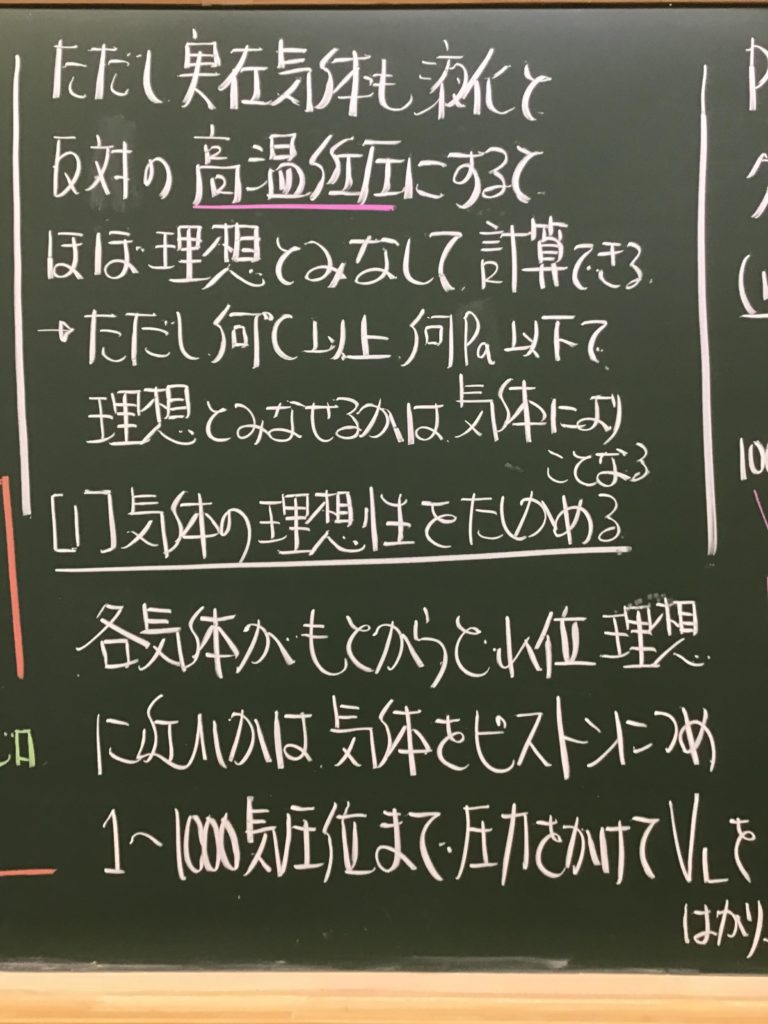 ただし実在気体も液化と
反対の高温低圧にすると
ほぼ理想とみなして計算できる
→ただし何℃以上何Pa以下で
理想とみなせるかは気体により
ことなる
[1]気体の理想性をたしかめる
各気体がもとからどれ位理想
に近いかは気体をピストンにつめ
1～1000気圧位まで圧力をかけてVLを
はかり
P
100